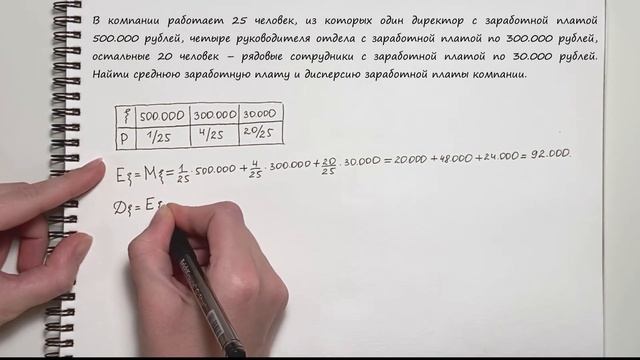 В компании работает 25 человек, из которых один директор с заработной платой
500.000 рублей, четыре руководителя отдела с заработной платой по 300.000 рублей,
остальные 20 человек – рядовые сотрудники с заработной платой по 30.000 рублей.
Найти среднюю заработную плату и дисперсию заработной платы компании.
ξ 500.000 300.000 30.000
P 1/25 4/25 20/25
Eξ = Mξ = 1/25 · 500.000 + 4/25 · 300.000 + 20/25 · 30.000 = 20000 + 48000 + 24.000 = 92.000.
Dξ = Eξ